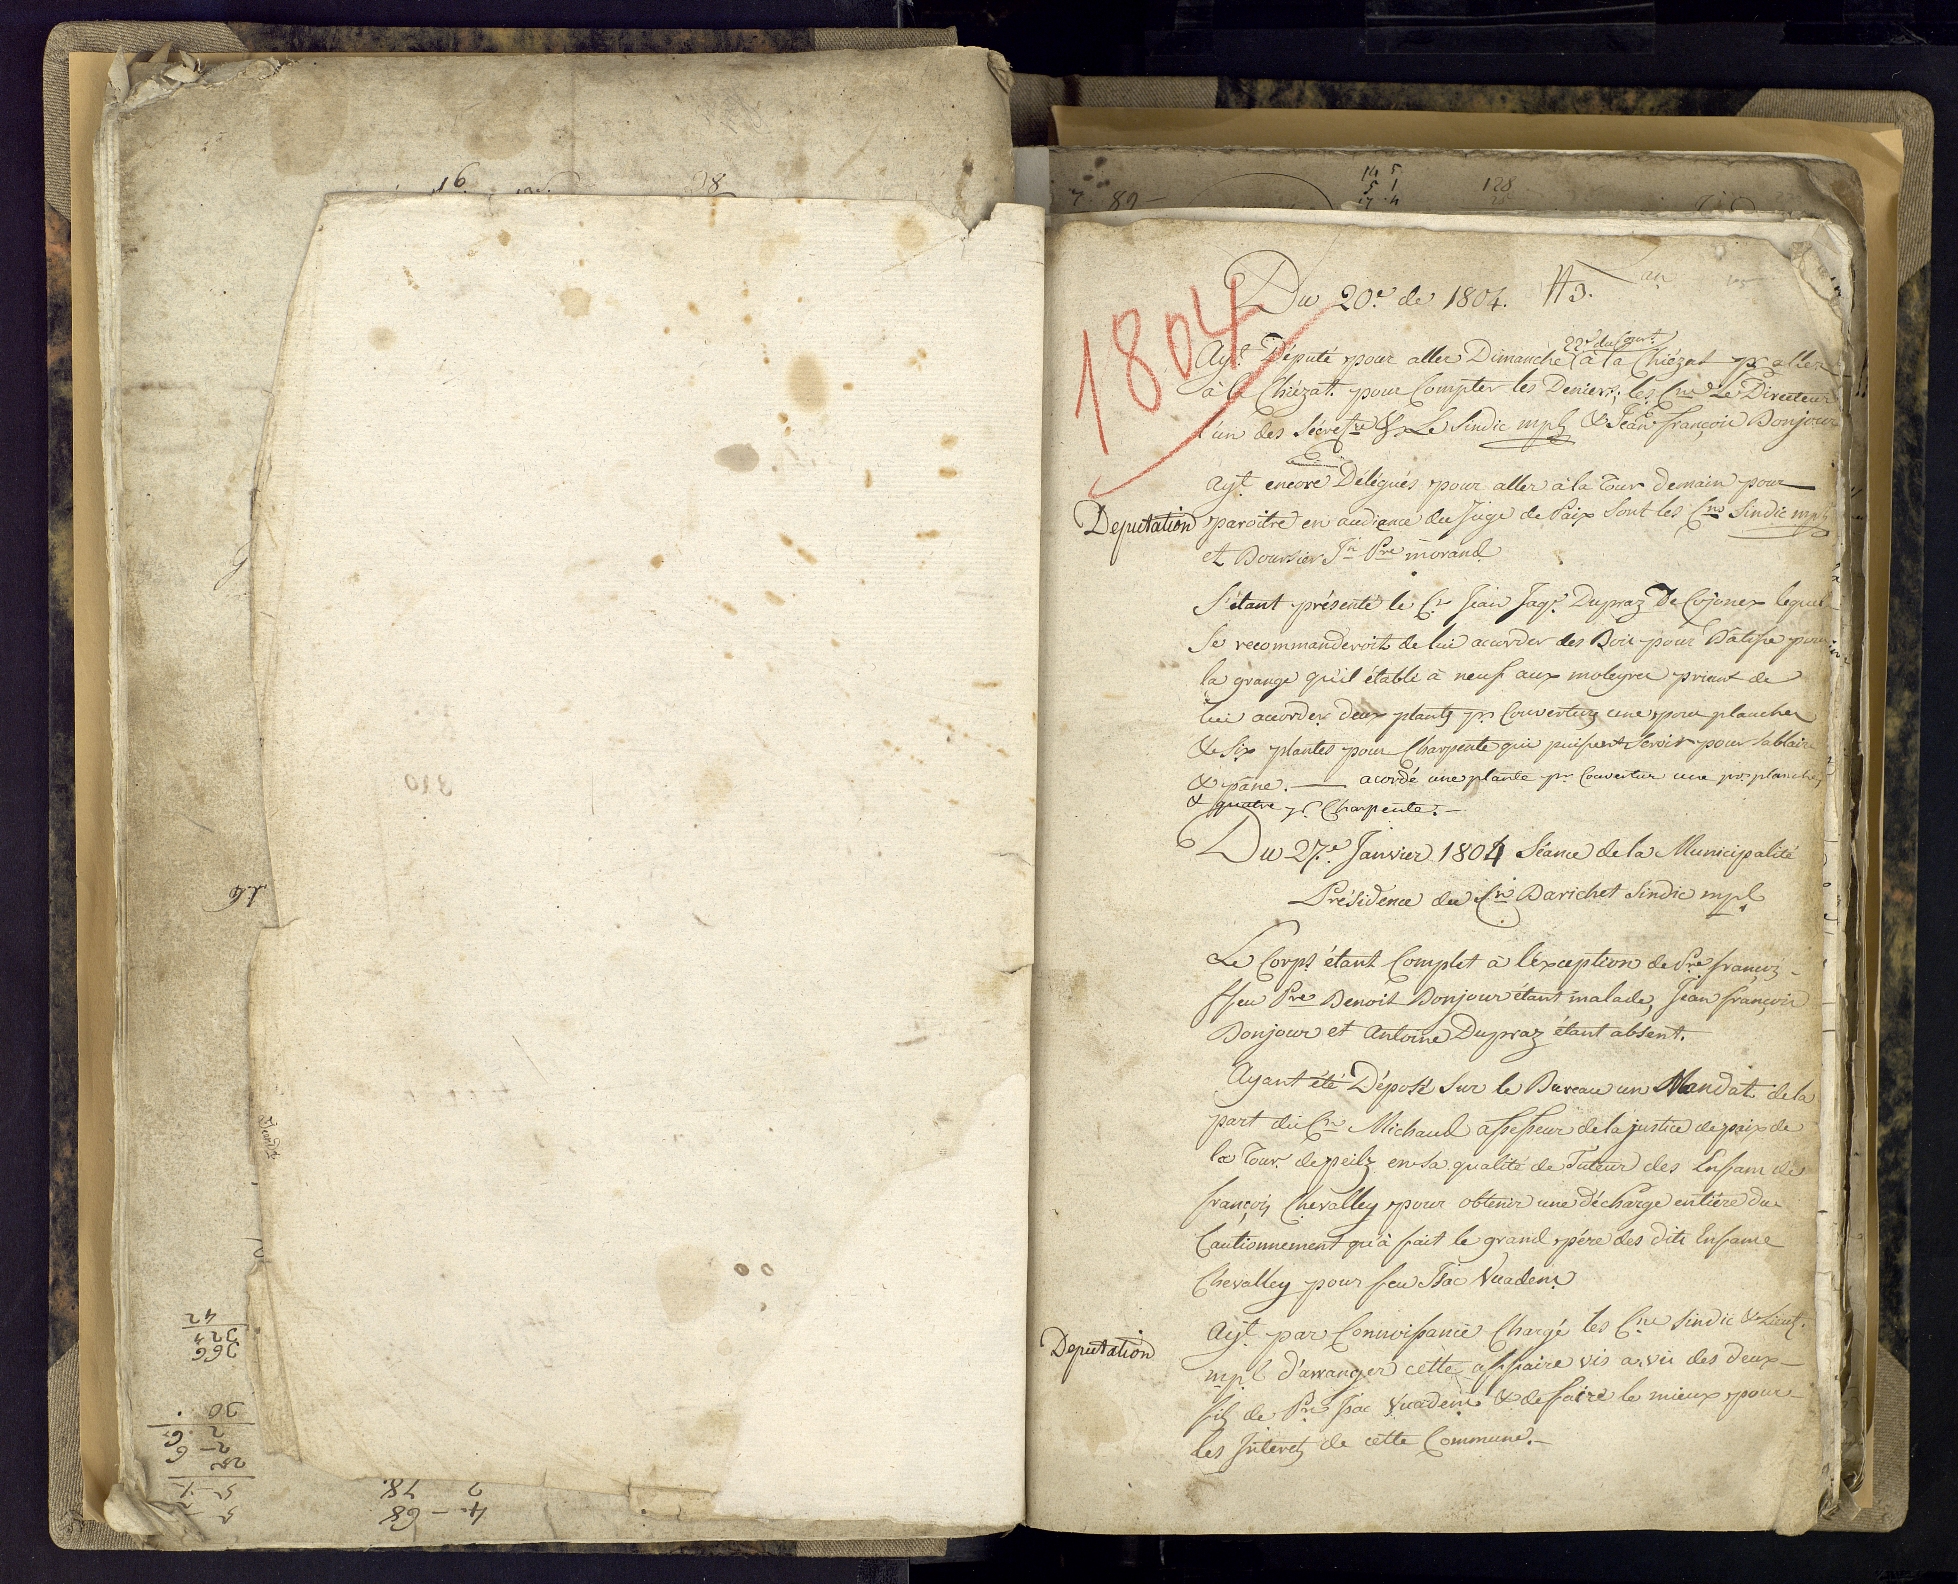 16.
28
310
16
42
324
366
30
4 - 68
2 78
7 - 89 -
14 5
5 1
17 4
128
1804
Du 20.e de 1804. N 3.
22e du Cour.t
Ayt. Député pour aller Dimanche à la Chiézat pr aller
à la Chiézat. pour Compter les Deniers; les Cns Le Directeur
l'un des Sécretre & Le Sindic mpl & Jean françois Bonjour
Ayt. encore Délégués pour aller à la Tour demain pour
Deputation
paroitre en audiance du Juge de Paix sont les Cns Sindic mpl
et Boursier Jn Pre morand
S'étant présenté le Cn Jean Jaqs. Dupraz De Cojonex lequel
se recommanderoit de lui acorder des Bois pour Batisse pour
la grange qu'il établi à neuf aux moleyres priant de
lui acorder deux plants pr Couverture une pour plancher
& Six plantes pour Charpente qui puissent servir pour sablaire
& pane. — acordé une plante pr Couvertur une pr plancher,
& quatre pr Charpente. —
Du 27.e Janvier 1804 Séance de la Municipalité
Présidence du Cn Barichet Sindic mpl
Le Corps étant Complet à l'éxception de Pre françoz
ffeu Pre Benoit Bonjour étant malade, Jean françois
Bonjour et Antoine Dupraz étant absent.
Ayant été Déposé sur le Bureau un Mandat de la
part du Cn Michaud assesseur de la justice de paix de
la Tour de peilz en sa qualité de Tuteur des Enfans de
françois Chevalley pour obtenir une décharge entiére du
Cautionnement qu'à fait le grand pére des dits Enfans
Chevalley pour feu Isac Vuadens
Deputation
Ayt. par Connoissance Chargé les Cns Sindic & Lieut.
mpl d'arranger cette affaire vis a vis des deux
fils de Pre Isac Vuadens & de faire le mieux pour
les Interets de cette Commune. —